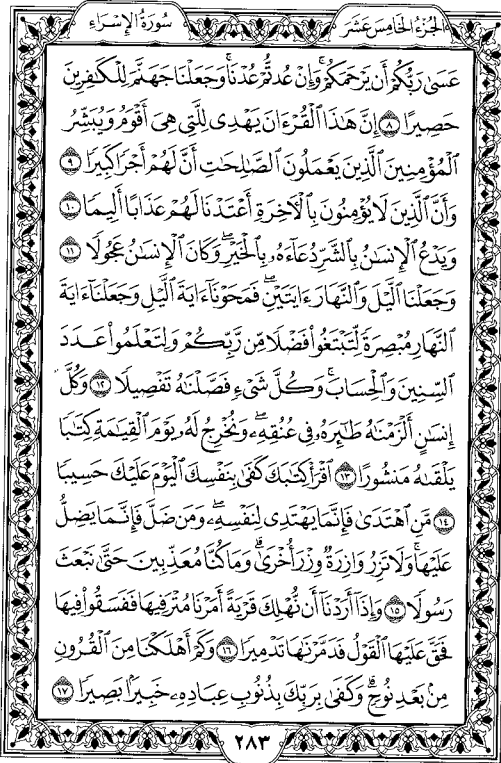 الجزء الخامس عشر
سورة الإسراء
عَسَىٰ رَبُّكُمْ أَن يَرْحَمَكُمْ ۚ وَإِنْ عُدتُّمْ عُدْنَا ۘ وَجَعَلْنَا جَهَنَّمَ لِلْكَٰفِرِينَ
حَصِيرًا ٨ إِنَّ هَٰذَا ٱلْقُرْءَانَ يَهْدِى لِلَّتِى هِىَ أَقْوَمُ وَيُبَشِّرُ
ٱلْمُؤْمِنِينَ ٱلَّذِينَ يَعْمَلُونَ ٱلصَّٰلِحَٰتِ أَنَّ لَهُمْ أَجْرًا كَبِيرًا ٩
وَأَنَّ ٱلَّذِينَ لَا يُؤْمِنُونَ بِٱلْءَاخِرَةِ أَعْتَدْنَا لَهُمْ عَذَابًا أَلِيمًا ١٠
وَيَدْعُ ٱلْإِنسَٰنُ بِٱلشَّرِّ دُعَآءَهُۥ بِٱلْخَيْرِ ۖ وَكَانَ ٱلْإِنسَٰنُ عَجُولًا ١١
وَجَعَلْنَا ٱلَّيْلَ وَٱلنَّهَارَ ءَايَتَيْنِ ۖ فَمَحَوْنَآ ءَايَةَ ٱلَّيْلِ وَجَعَلْنَآ ءَايَةَ
ٱلنَّهَارِ مُبْصِرَةً لِّتَبْتَغُوا۟ فَضْلًا مِّن رَّبِّكُمْ وَلِتَعْلَمُوا۟ عَدَدَ
ٱلسِّنِينَ وَٱلْحِسَابَ ۚ وَكُلَّ شَىْءٍ فَصَّلْنَٰهُ تَفْصِيلًا ١٢ وَكُلَّ
إِنسَٰنٍ أَلْزَمْنَٰهُ طَٰٓئِرَهُۥ فِى عُنُقِهِۦ ۖ وَنُخْرِجُ لَهُۥ يَوْمَ ٱلْقِيَٰمَةِ كِتَٰبًا
يَلْقَىٰهُ مَنشُورًا ١٣ ٱقْرَأْ كِتَٰبَكَ كَفَىٰ بِنَفْسِكَ ٱلْيَوْمَ عَلَيْكَ حَسِيبًا
١٤ مَّنِ ٱهْتَدَىٰ فَإِنَّمَا يَهْتَدِى لِنَفْسِهِۦ ۖ وَمَن ضَلَّ فَإِنَّمَا يَضِلُّ
عَلَيْهَا ۚ وَلَا تَزِرُ وَازِرَةٌ وِزْرَ أُخْرَىٰ ۗ وَمَا كُنَّا مُعَذِّبِينَ حَتَّىٰ نَبْعَثَ
رَسُولًا ١٥ وَإِذَآ أَرَدْنَآ أَن نُّهْلِكَ قَرْيَةً أَمَرْنَا مُتْرَفِيهَا فَفَسَقُوا۟ فِيهَا
فَحَقَّ عَلَيْهَا ٱلْقَوْلُ فَدَمَّرْنَٰهَا تَدْمِيرًا ١٦ وَكَمْ أَهْلَكْنَا مِنَ ٱلْقُرُونِ
مِنۢ بَعْدِ نُوحٍ ۗ وَكَفَىٰ بِرَبِّكَ بِذُنُوبِ عِبَادِهِۦ خَبِيرًۢا بَصِيرًا ١٧
٢٨٣